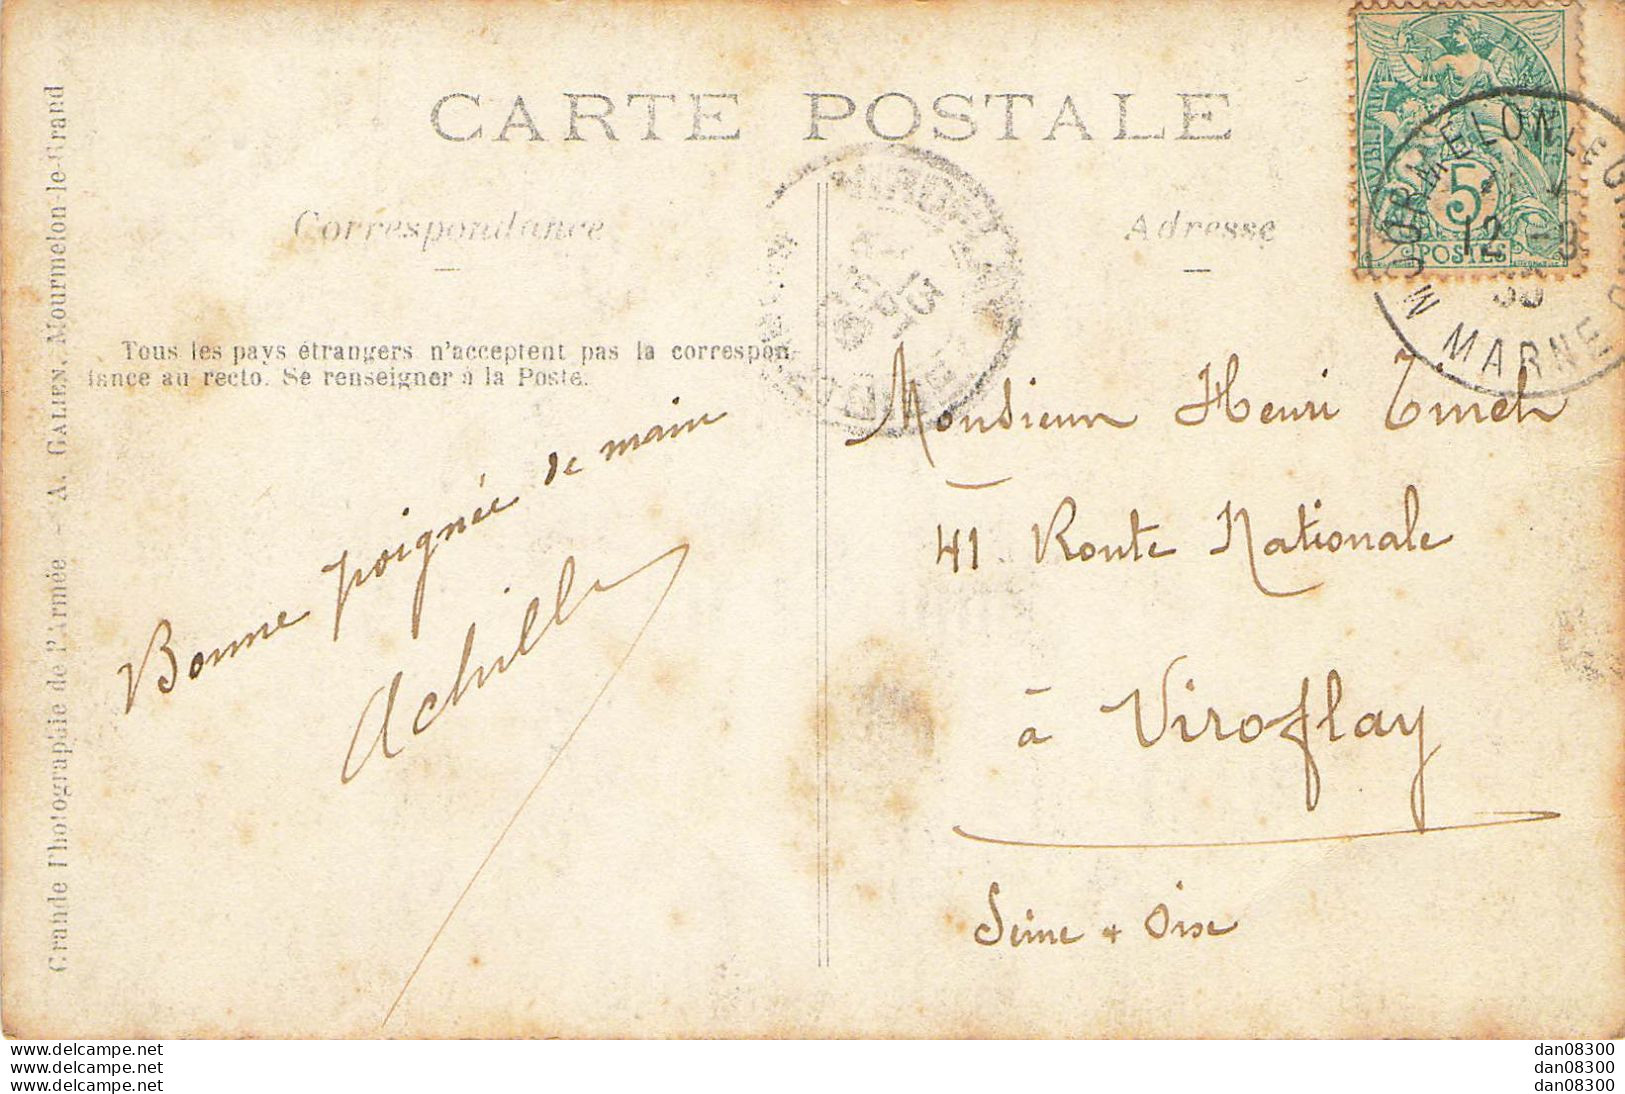 CARTE POSTALE
Correspondance
Adresse
Tous les pays étrangers n'acceptent pas la correspon-
dance au recto. Se renseigner à la Poste.
Grande Photographie de l'Armée - A. GALIEN, Mourmelon-le-Grand
Bonne poignée de main
Achille
Monsieur Henri
41 Route Nationale
à Viroflay
Seine & Oise
5
POSTES
MOURMELON-LE-GRAND
12
MARNE
VIROFLAY
13
www.delcampe.net
www.delcampe.net
www.delcampe.net
dan08300
dan08300
dan08300